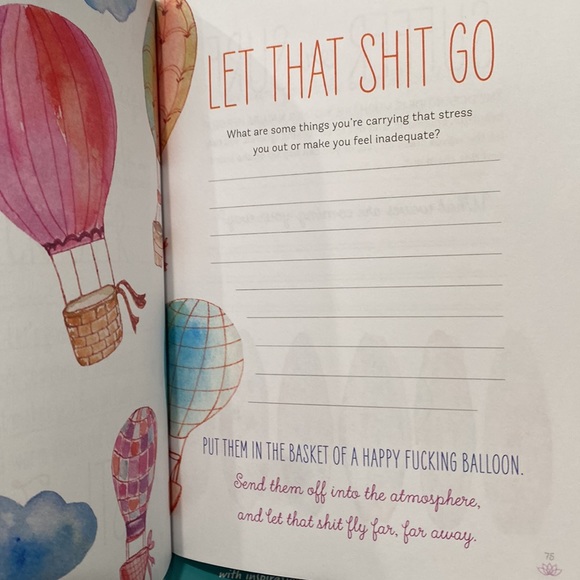 LET THAT SHIT GO
What are some things you're carrying that stress
you out or make you feel inadequate?
PUT THEM IN THE BASKET OF A HAPPY FUCKING BALLOON.
Send them off into the atmosphere,
and let that shit fly far, far away.
75
with